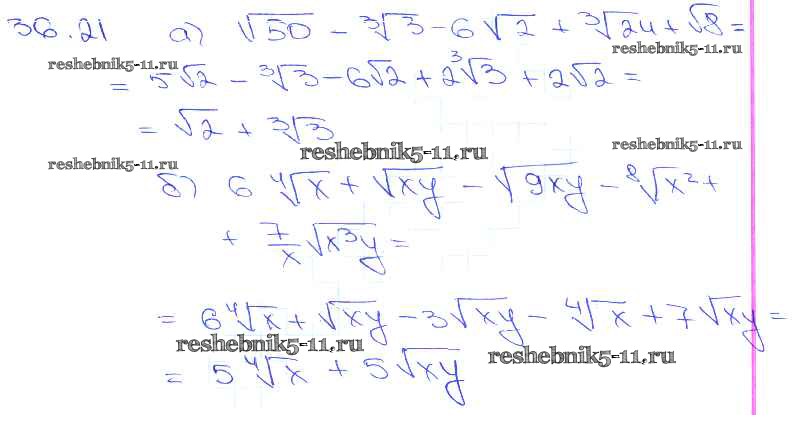 36.21 а) √50 - ∛3 - 6√2 + ∛24 + √8 =
reshebnik5-11.ru reshebnik5-11.ru
= 5√2 - ∛3 - 6√2 + 2∛3 + 2√2 =
= √2 + ∛3
reshebnik5-11.ru reshebnik5-11.ru reshebnik5-11.ru
б) 6 ∜x + √xy - √9xy - ⁸√x² +
+ 7/x √x³y =
= 6∜x + √xy - 3√xy - ∜x + 7√xy =
reshebnik5-11.ru reshebnik5-11.ru
= 5∜x + 5√xy